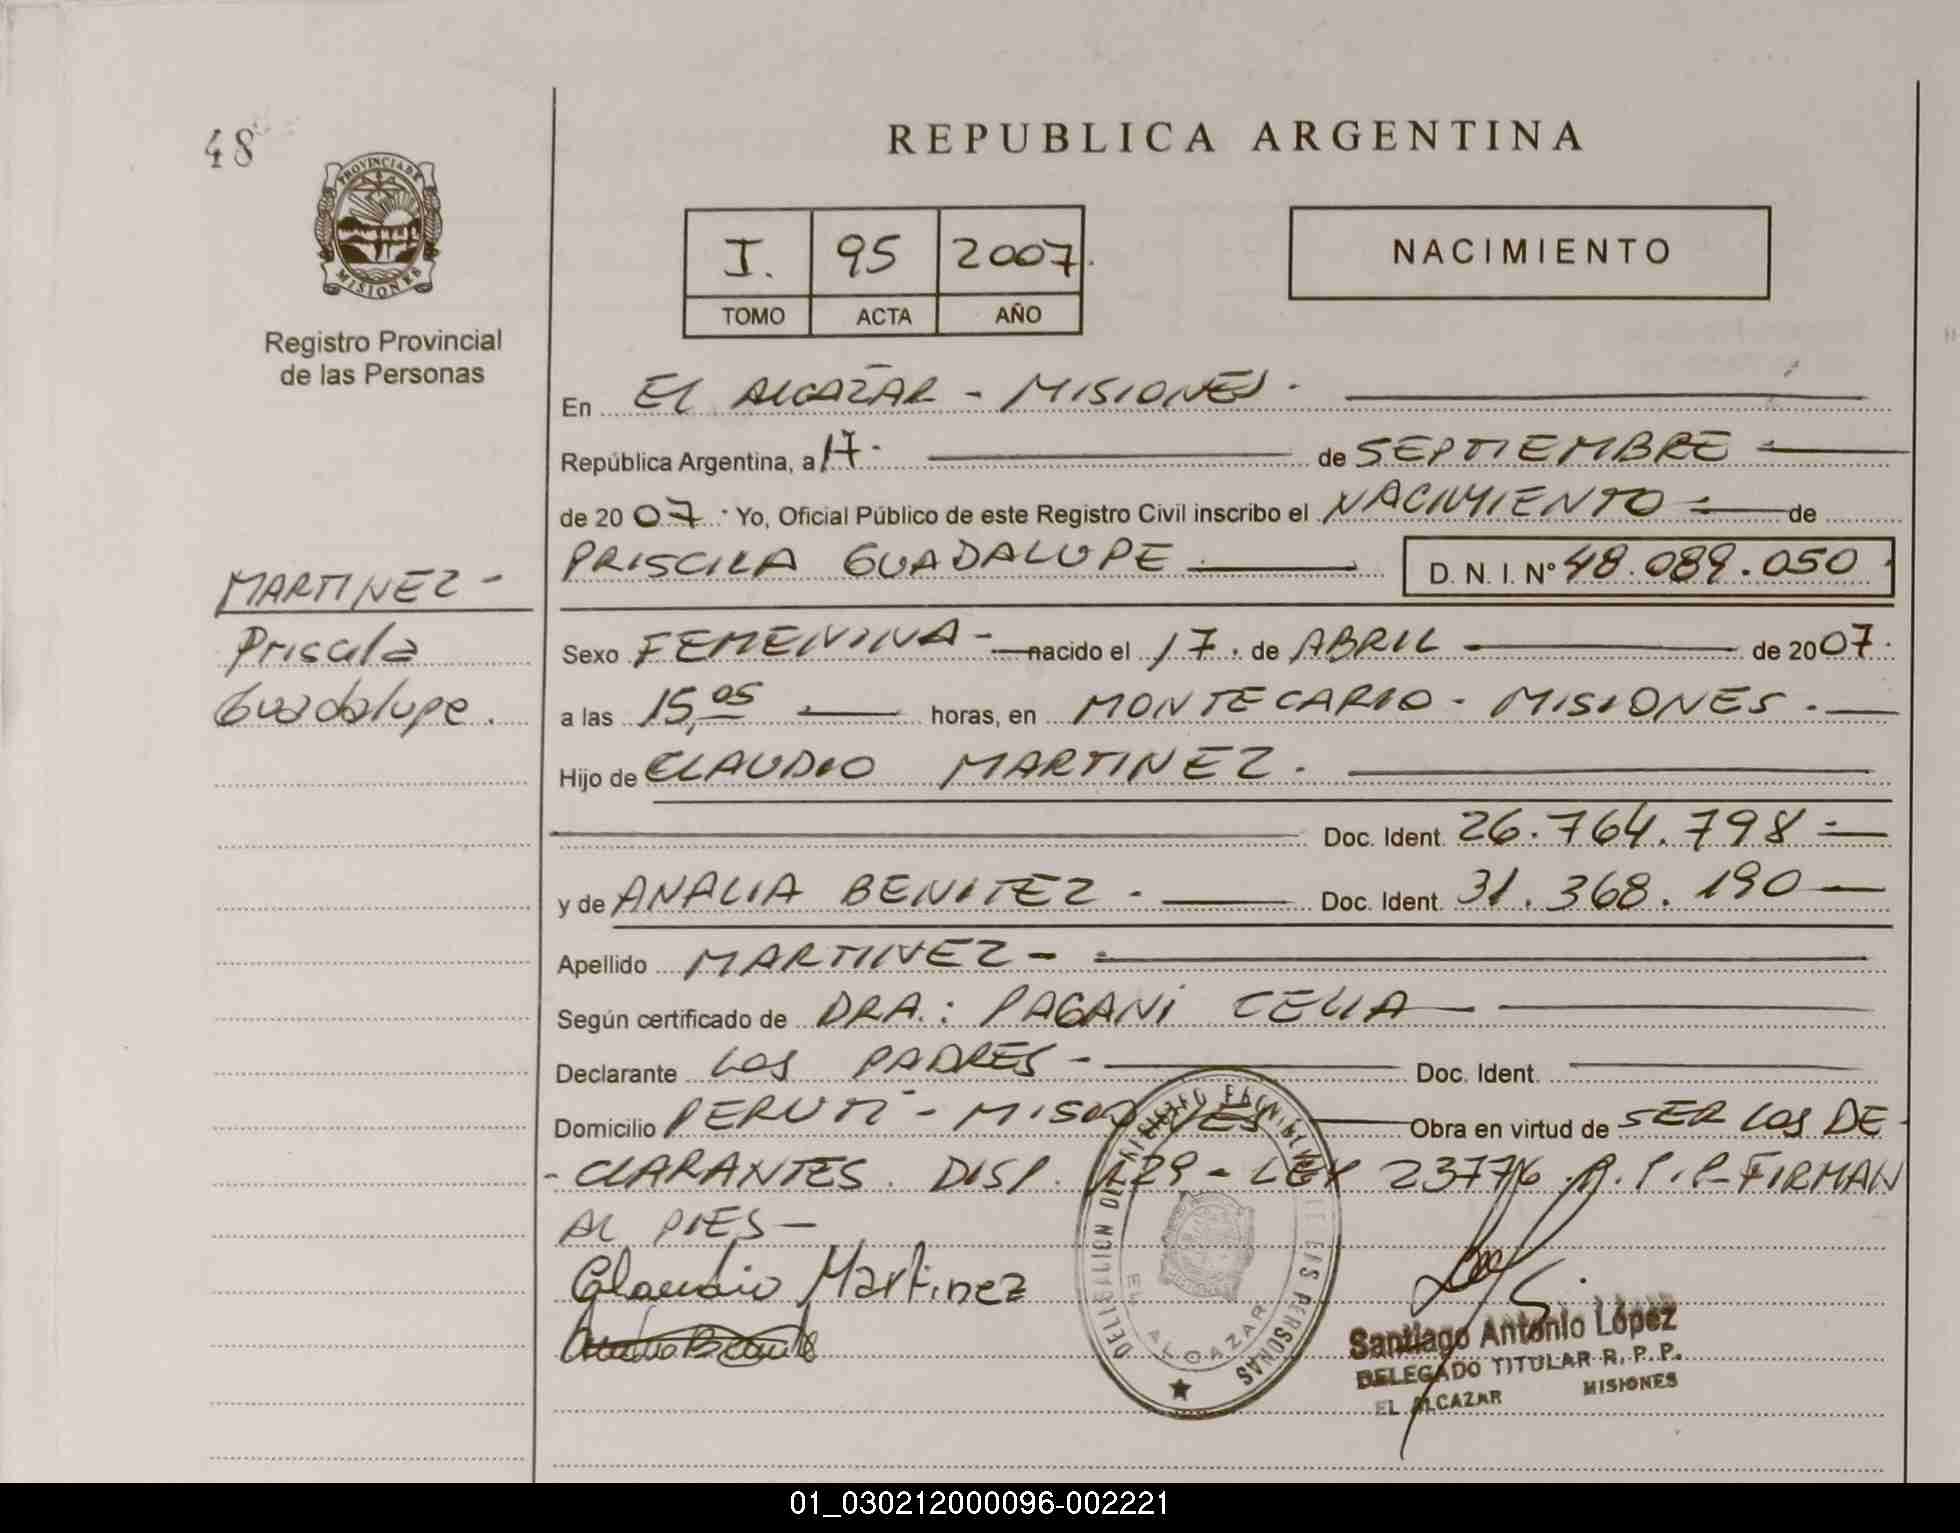 48
PROVINCIA DE
MISIONES
Registro Provincial
de las Personas
REPUBLICA ARGENTINA
I. 95 2007.
TOMO ACTA AÑO
NACIMIENTO
En EL ALCAZAR - MISIONES.
República Argentina, a 17. de SEPTIEMBRE
de 2007. Yo, Oficial Público de este Registro Civil inscribo el NACIMIENTO de
PRISCILA GUADALUPE D. N. I. Nº 48.089.050
MARTINEZ -
Priscila
Guadalupe.
Sexo FEMENINA - nacido el 17. de ABRIL de 2007.
a las 15,05 horas, en MONTECARLO - MISIONES.
Hijo de CLAUDIO MARTINEZ.
Doc. Ident. 26.764.798
y de ANALIA BENITEZ - Doc. Ident. 31.368.190
Apellido MARTINEZ -
Según certificado de DRA.: PAGANI CELIA
Declarante LOS PADRES - Doc. Ident.
Domicilio PERUTI - MISIONES Obra en virtud de SER LOS DE-
- CLARANTES. DISP. 129 - LEY 23776 R.P.P- FIRMAN
AL PIES -
Claudio Martinez
DELEGACION DEL REGISTRO PROVINCIAL DE LAS PERSONAS
EL ALCAZAR
Santiago Antonio López
DELEGADO TITULAR R. P. P.
EL ALCAZAR MISIONES
01_030212000096-002221